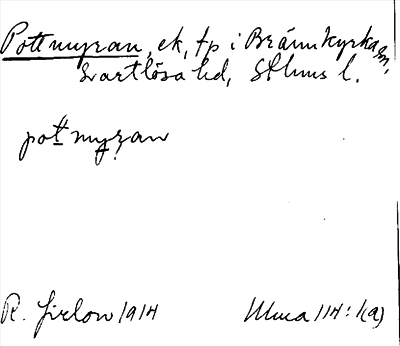 Pottmyran, ek, tp i Brännkyrka sn,
Svartlösa hd, Sthms l.
pottmyran
R. Jirlow 1914
Ulma 114:1(a)